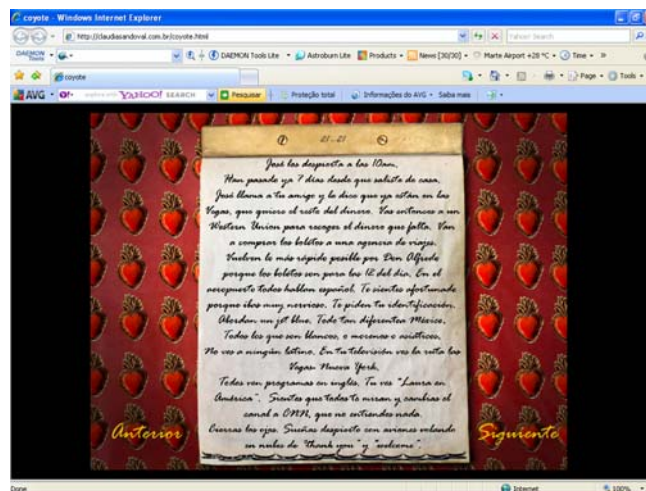 coyote - Windows Internet Explorer
http://claudiasandoval.com.br/coyote.html
Yahoo! Search
DAEMON Tools
DAEMON Tools Lite
Astroburn Lite
Products
News [30/30]
Marte Airport +28 °C
Time
coyote
Page
Tools
AVG
YAHOO! SEARCH
Pesquisar
Proteção total
Informações do AVG
Saiba mais
José los despierta a las 10am.
Han pasado ya 7 días desde que saliste de casa.
José llama a tu amigo y le dice que ya están en las
Vegas, que quiere el resto del dinero. Vas entonces a un
Western Union para recoger el dinero que falta. Van
a comprar los boletos a una agencia de viajes.
Vuelven lo más rápido posible por Don Alfredo
porque los boletos son para las 12 del día. En el
aeropuerto todos hablan español. Te sientes afortunado
porque ibas muy nervioso. Te piden tu identificación.
Abordan un jet blue. Todo tan diferentea México.
Todos los que son blancos, o morenos o asiáticos.
No ves a ningún latino. En tu televisión ves la ruta las
Vegas- Nueva York.
Todos ven programas en inglés. Tu ves "Laura en
América". Sientes que todos te miran y cambias el
canal a CNN, que no entiendes nada.
Cierras los ojos. Sueñas despierto con aviones volando
en nubes de "thank you" y "welcome".
Anterior
Siguiente
Done
Internet
100%